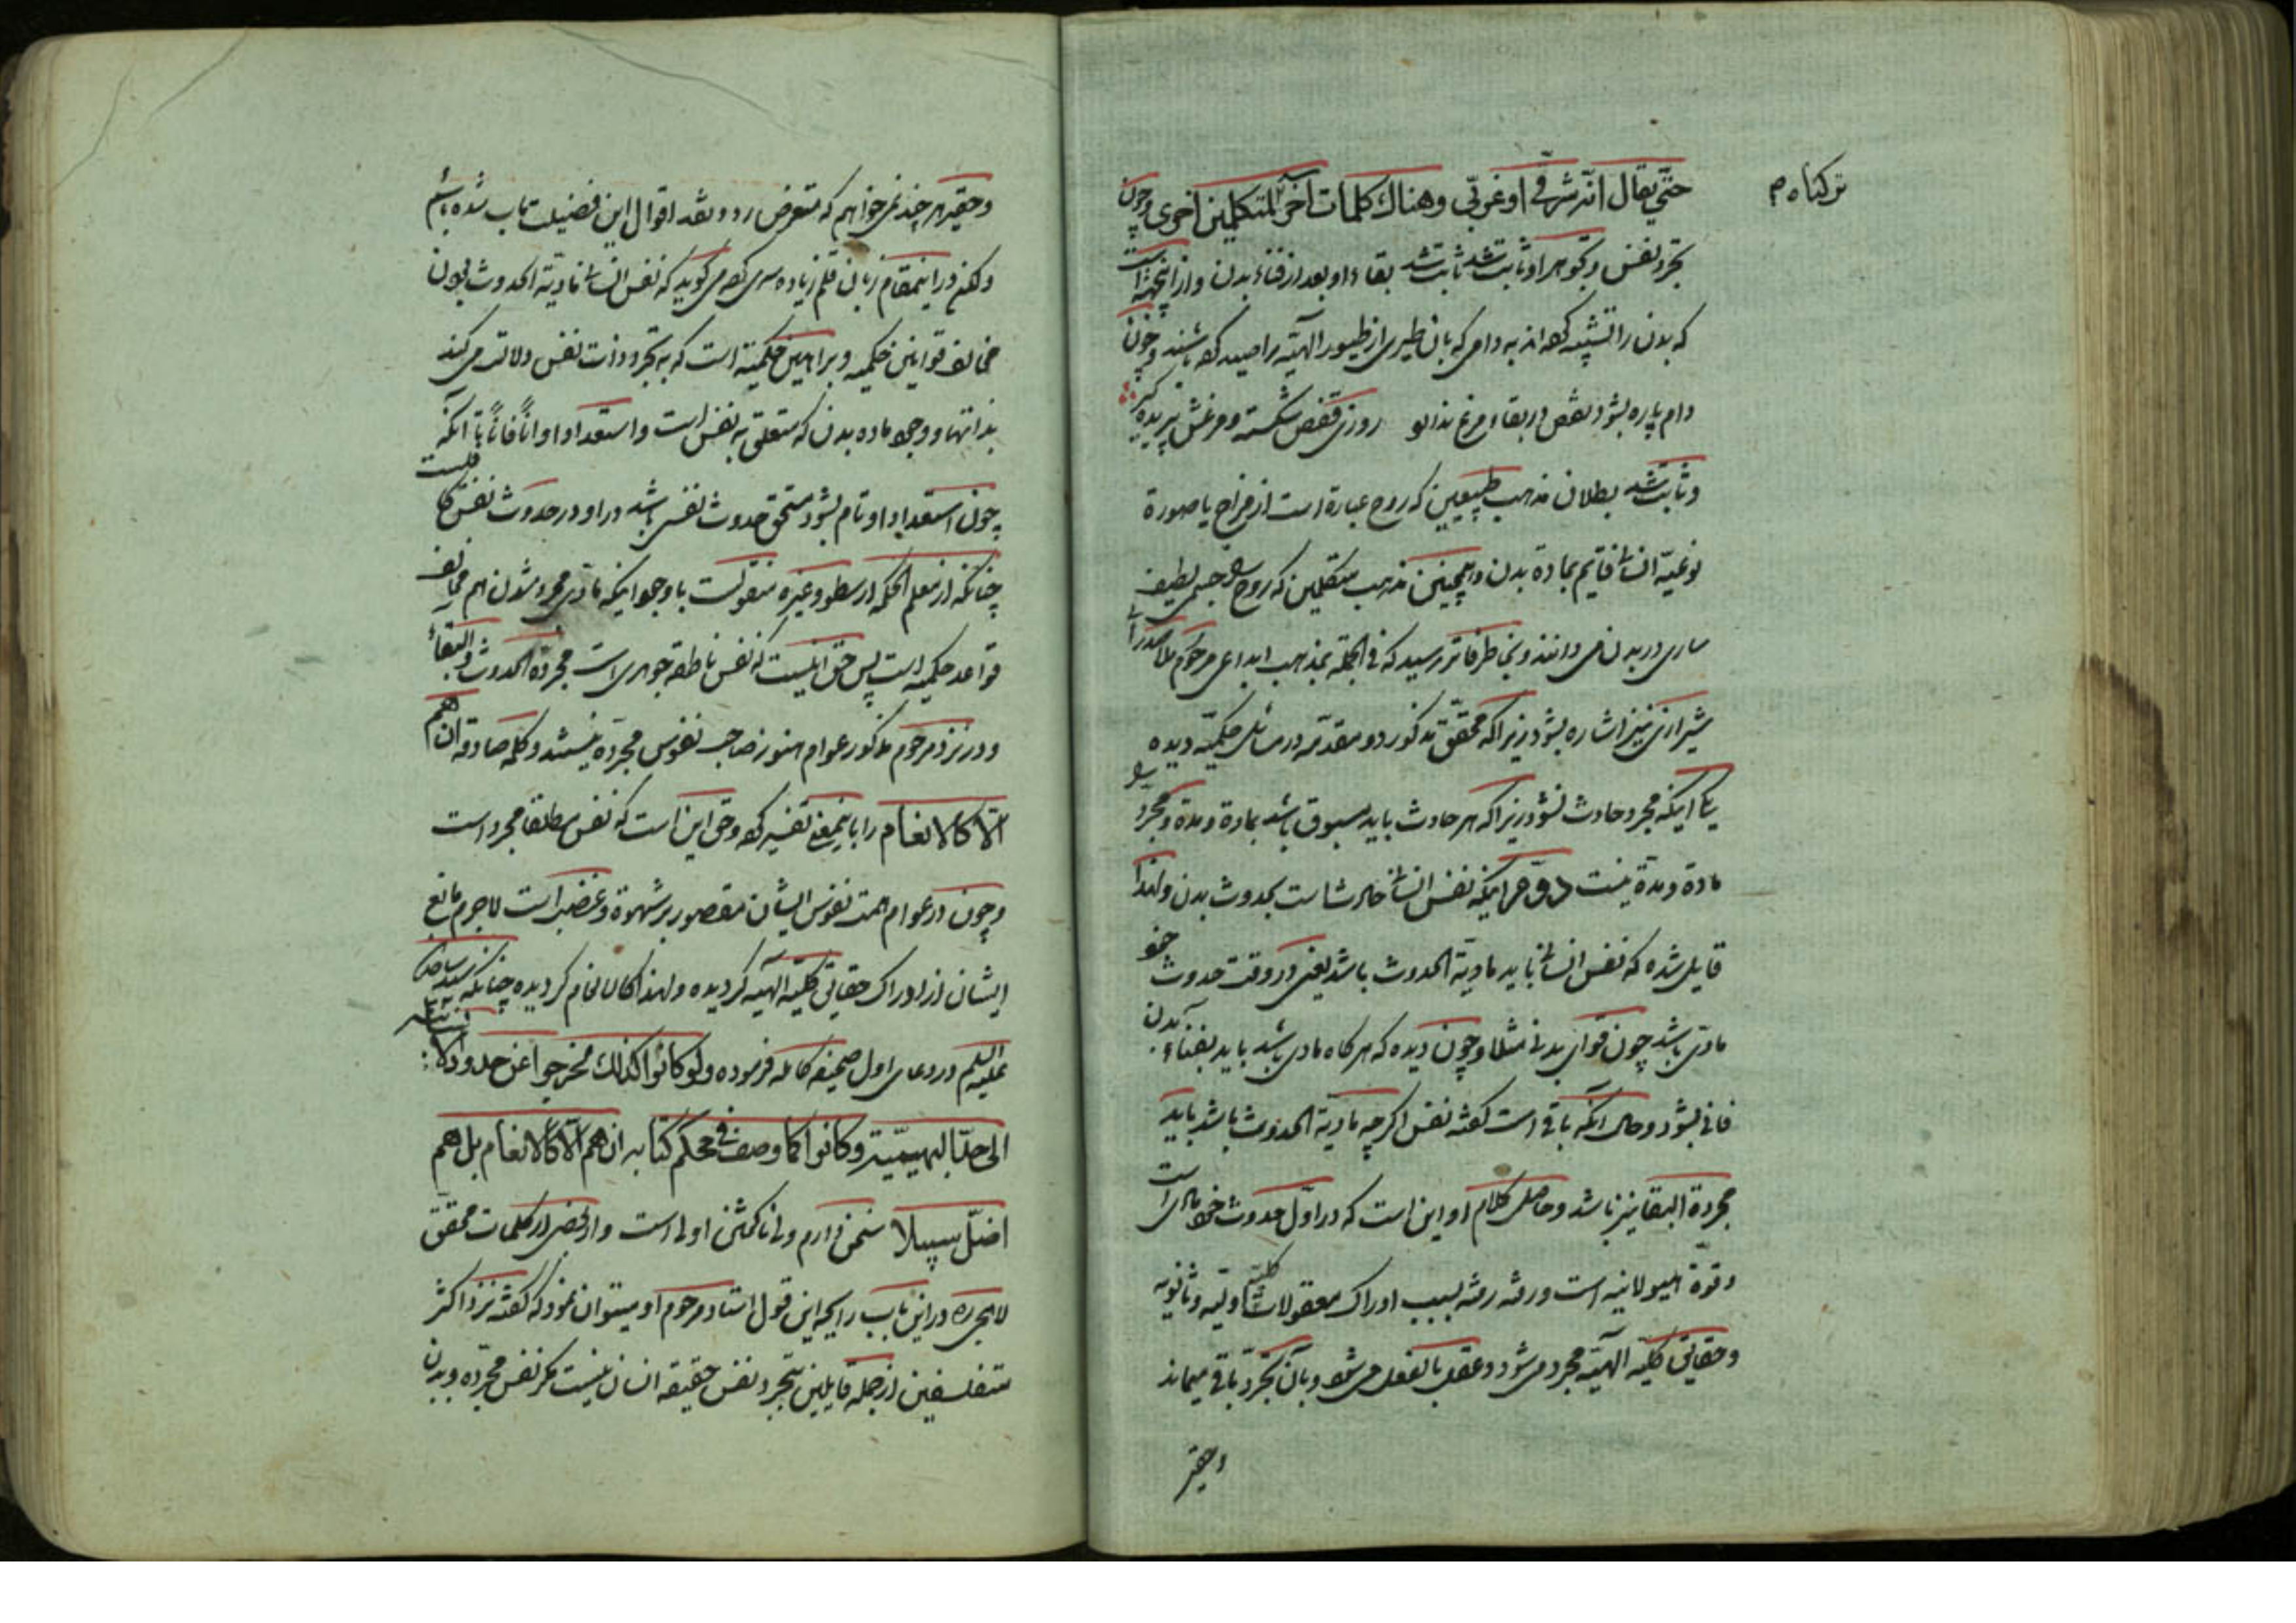 ترکناه م
حتّی یقال انّه شرقی او غربی وهناك كلمات آخر للمتكلمین اخری وچون
تجرد نفس وتجوهر او ثابت شد ثابت شد بقاء او بعد از فناء بدن واز اینجهة است
که بدن را تشبیه کرده اند به دامی که بان طیری از طیور الهیّه را صید کرده باشند وچون
دام پاره بشود نقص در بقاء مرغ ندارد روزی قفس شکسته و مرغش پریده گیر
وثابت شد بطلان مذهب طبیعیین که روح عبارة است از مزاج یا صورة
نوعیّه انسانی قایم بمادّة بدن وهمچنین مذهب متکلمین که روح را جسمی لطیف
ساری در بدن می دانند و بخاطر فاتر رسید که فی الجملة بمذهب ابداعی مرحوم ملا صدرای
شیرازی نیز اشاره بشود زیرا که محقّق مذکور دو مقدّمه در مسائل حکمیّه دیده
یکی اینکه مجرد حادث نشود زیرا که هر حادث باید مسبوق باشد بمادة ومدة ومجرد را
مادة ومدة نیست دوّم اینکه نفس انسانی حادث است بحدوث بدن ولهذا
قایل شده که نفس انسانی باید مادیّة الحدوث باشد یعنی در وقت حدوث خود
مادّی باشد چون قوای بدنی مثلا وچون دیده که هر کاه مادی باشد باید بفناء بدن
فانی بشود وحال آنکه باقی است کفته نفس اکرچه مادیّة الحدوث باشد باید
مجردة البقا نیز باشد وحاصل کلام او این است که در اوّل حدوث خود مادی است
وقوّة هیولانیه است ورفته رفته بسبب ادراک معقولات کلیّه اولیّه وثانویه
وحقایق کلیّه الهیّه مجرد میشود وعقل بالفعل می شود وبآن تجرّد باقی میماند
وحقیر
وحقیر هر چند نمی خواهم که متعرض رد ونقد اقوال این فضیلت مآب شده باشم
ولکن در اینمقام زبان قلم زیاده سری کرده می کوید که نفس انسانی مادیّة الحدوث بودن
مخالف قوانین حکمیه وبراهین حکمیّة است که به تجرد ذات نفس دلالت می کند
بذاتها ووجود ماده بدن که متعلق به نفس است واستعداد او آناً فاناً تا آنکه
چون استعداد او تام بشود مستحق حدوث نفس باشد در او در حدوث نفس کافیست
چنانکه از معلم الحکمة ارسطو وغیره منقولست با وجود اینکه مادی مجرد شدن هم مخالف
قواعد حکمیه است پس حق اینست که نفس ناطقه جوهری است مجردة الحدوث والبقاء
ودر نزد مرحوم مذکور عوام هنوز صاحب نفوس مجرّده نیستند وکلمه صادقه ان هم
الّا کالانعام را باینمعنی تفسیر کرده وحق این است که نفس مطلقا مجرد است
وچون در عوام همت نفوس ایشان مقصور بر شهوة وغضب است لاجرم مانع
ایشان از ادراک حقایق کلیّه الهیّه کردیده ولهذا کالانعام کردیده چنانکه سید ساجدین
علیه السلم در دعای اول صحیفه کامله فرموده ولو کانوا کذلك لخرجوا عن حدود الانسانیّة
الی حدّ البهیمیّة وکانوا کما وصف فی محکم کتابه ان هم الّا کالانعام بل هم
اضلّ سبیلا سخن دارم ولی ناکفتن اولی است واز بعضی از کلمات محقّق
لاهیجی ره در این باب رایحه این قول استاد مرحوم او میتوان نمود که کفته نزد اکثر
متفلسفین از جمله قایلین بتجرد نفس حقیقة انسان نیست مکر نفس مجرّده وبدن